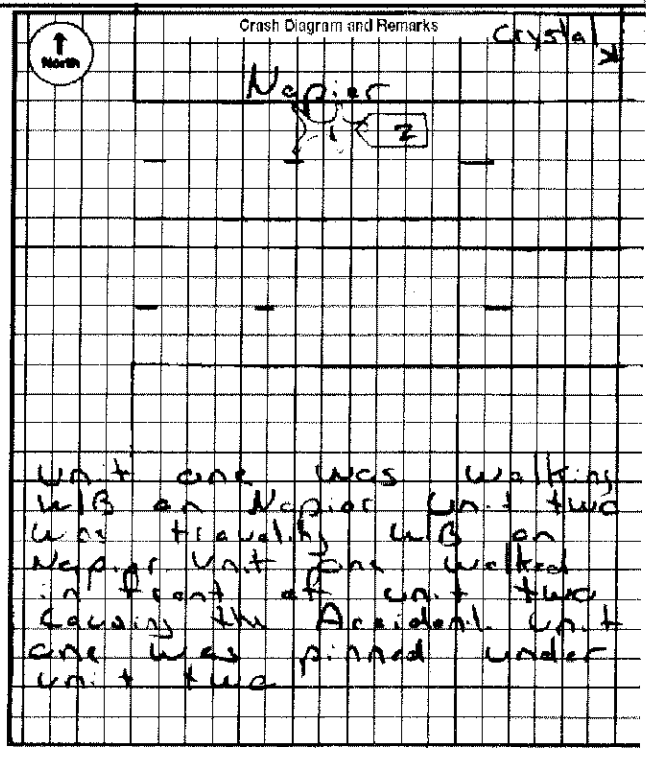 Crash Diagram and Remarks
Crystal
North
Napier
1
2
Unit one was walking
WB on Napier Unit two
was traveling WB on
Napier Unit one walked
in front of unit two
Causing the Accident. Unit
one was pinned under
unit two